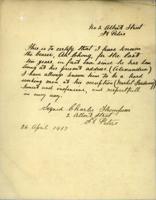 No 2 Albert Street
St Peters
This is to certify that I have known
the bearer, Ah Ching, for the last
ten years, in fact ever since he has been
living at his present address (Alexandria)
I have always known him to be a hard
working man at his occupation (Market Gardening)
honest and inoffensive, and respectful
in every way.
Signed Charles Thompson
2 Albert Street
St Peters
26 April 1917